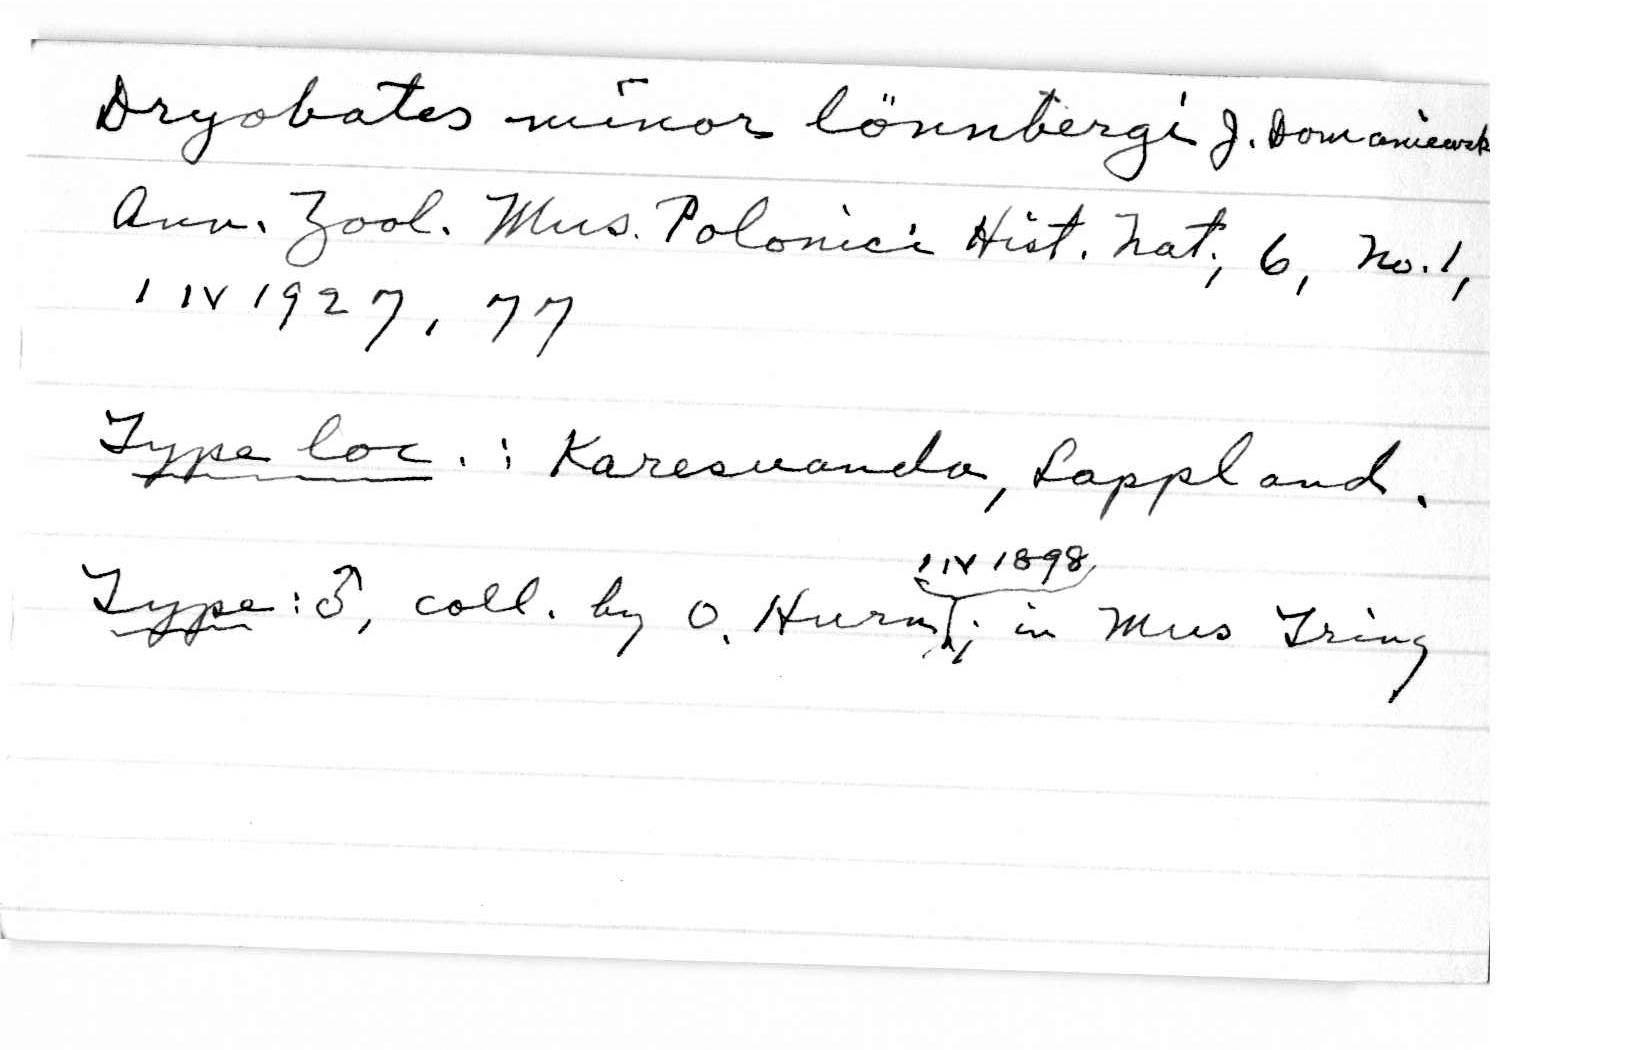 Dryobates minor lönnbergi J. Domaniewsk
Ann. Zool. Mus. Polonici Hist. Nat., 6, No. 1,
1 IV 1927, 77
Type loc.: Karesuanda, Lappland.
1 IV 1898,
Type: ♂, coll. by O. ; in Mus Tring